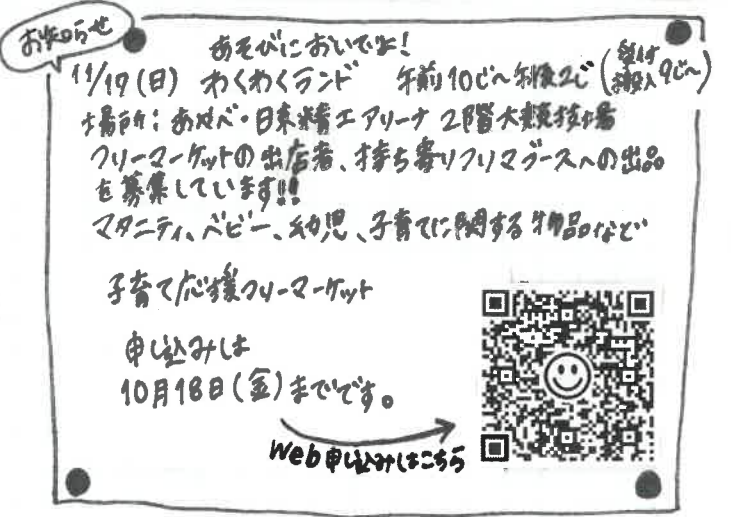 お知らせ
あそびにおいでよ!
11/19(日) わくわくランド 午前10じ〜午後2じ(受付 搬入9じ〜)
場所:あやべ・日東精工アリーナ 2階大競技場
フリーマーケットの出店者、持ち寄りフリマブースへの出品
を募集しています!!
マタニティ、ベビー、幼児、子育てに関する物品など
子育て応援フリーマーケット
申し込みは
10月18日(金)までです。
Web申し込みはこちら